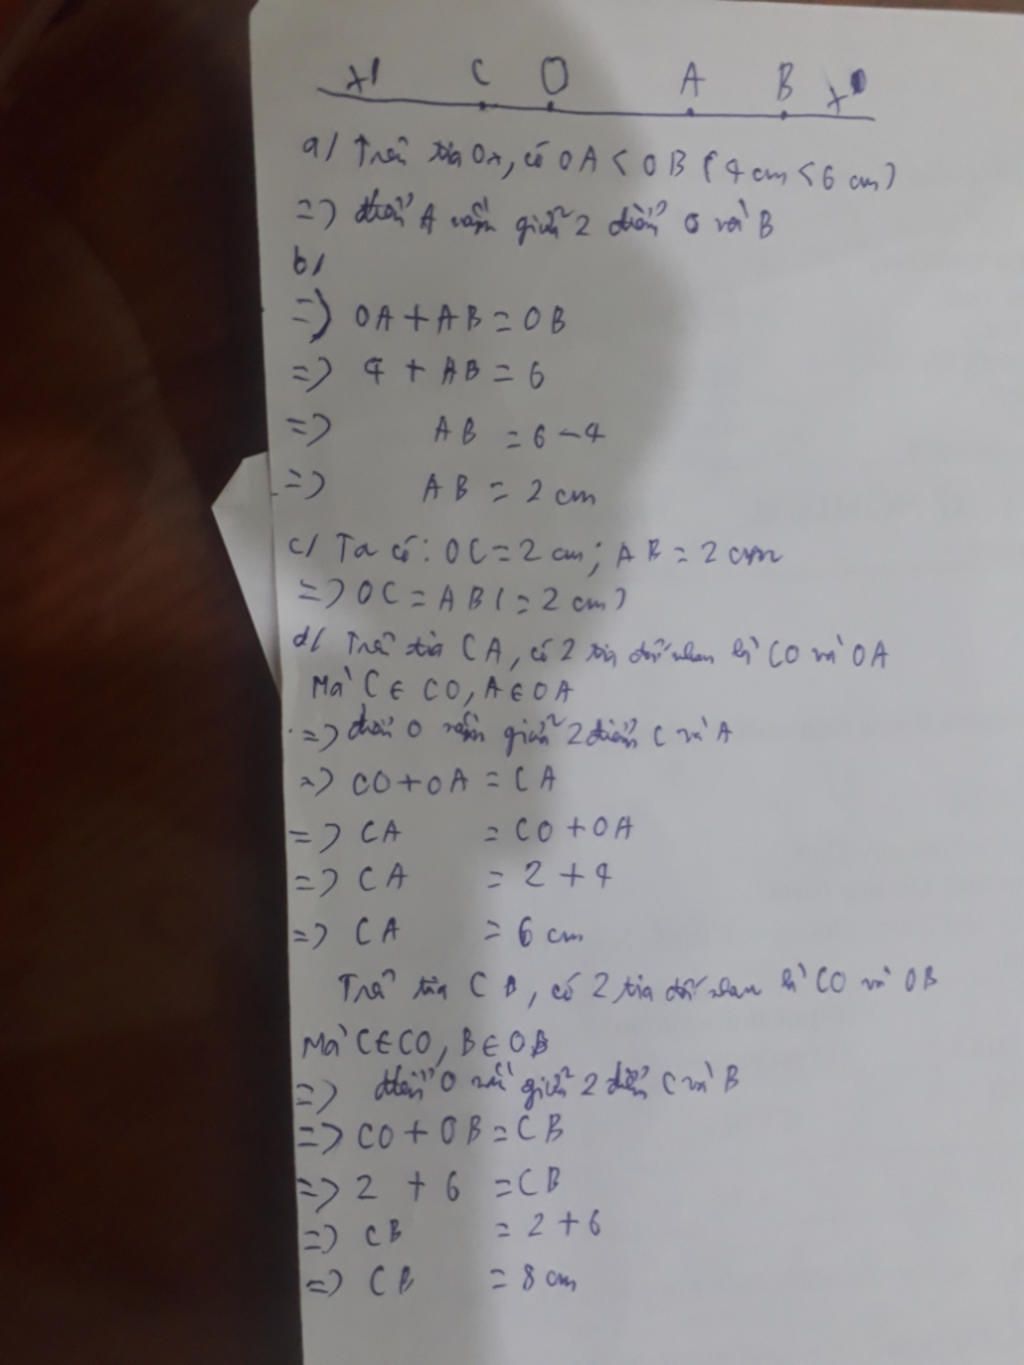 x' C O A B x
a/ Trên tia Ox, có OA < OB (4 cm < 6 cm)
=> điểm A nằm giữa 2 điểm O và B
b/
=> OA + AB = OB
=> 4 + AB = 6
=> AB = 6 - 4
=> AB = 2 cm
c/ Ta có: OC = 2 cm; AB = 2 cm
=> OC = AB (= 2 cm)
d/ Trên tia CA, có 2 tia đối nhau là CO và OA
Mà C ∈ CO, A ∈ OA
=> điểm O nằm giữa 2 điểm C và A
=> CO + OA = CA
=> CA = CO + OA
=> CA = 2 + 4
=> CA = 6 cm
Trên tia CB, có 2 tia đối nhau là CO và OB
Mà C ∈ CO, B ∈ OB
=> điểm O nằm giữa 2 điểm C và B
=> CO + OB = CB
=> 2 + 6 = CB
=> CB = 2 + 6
=> CB = 8 cm